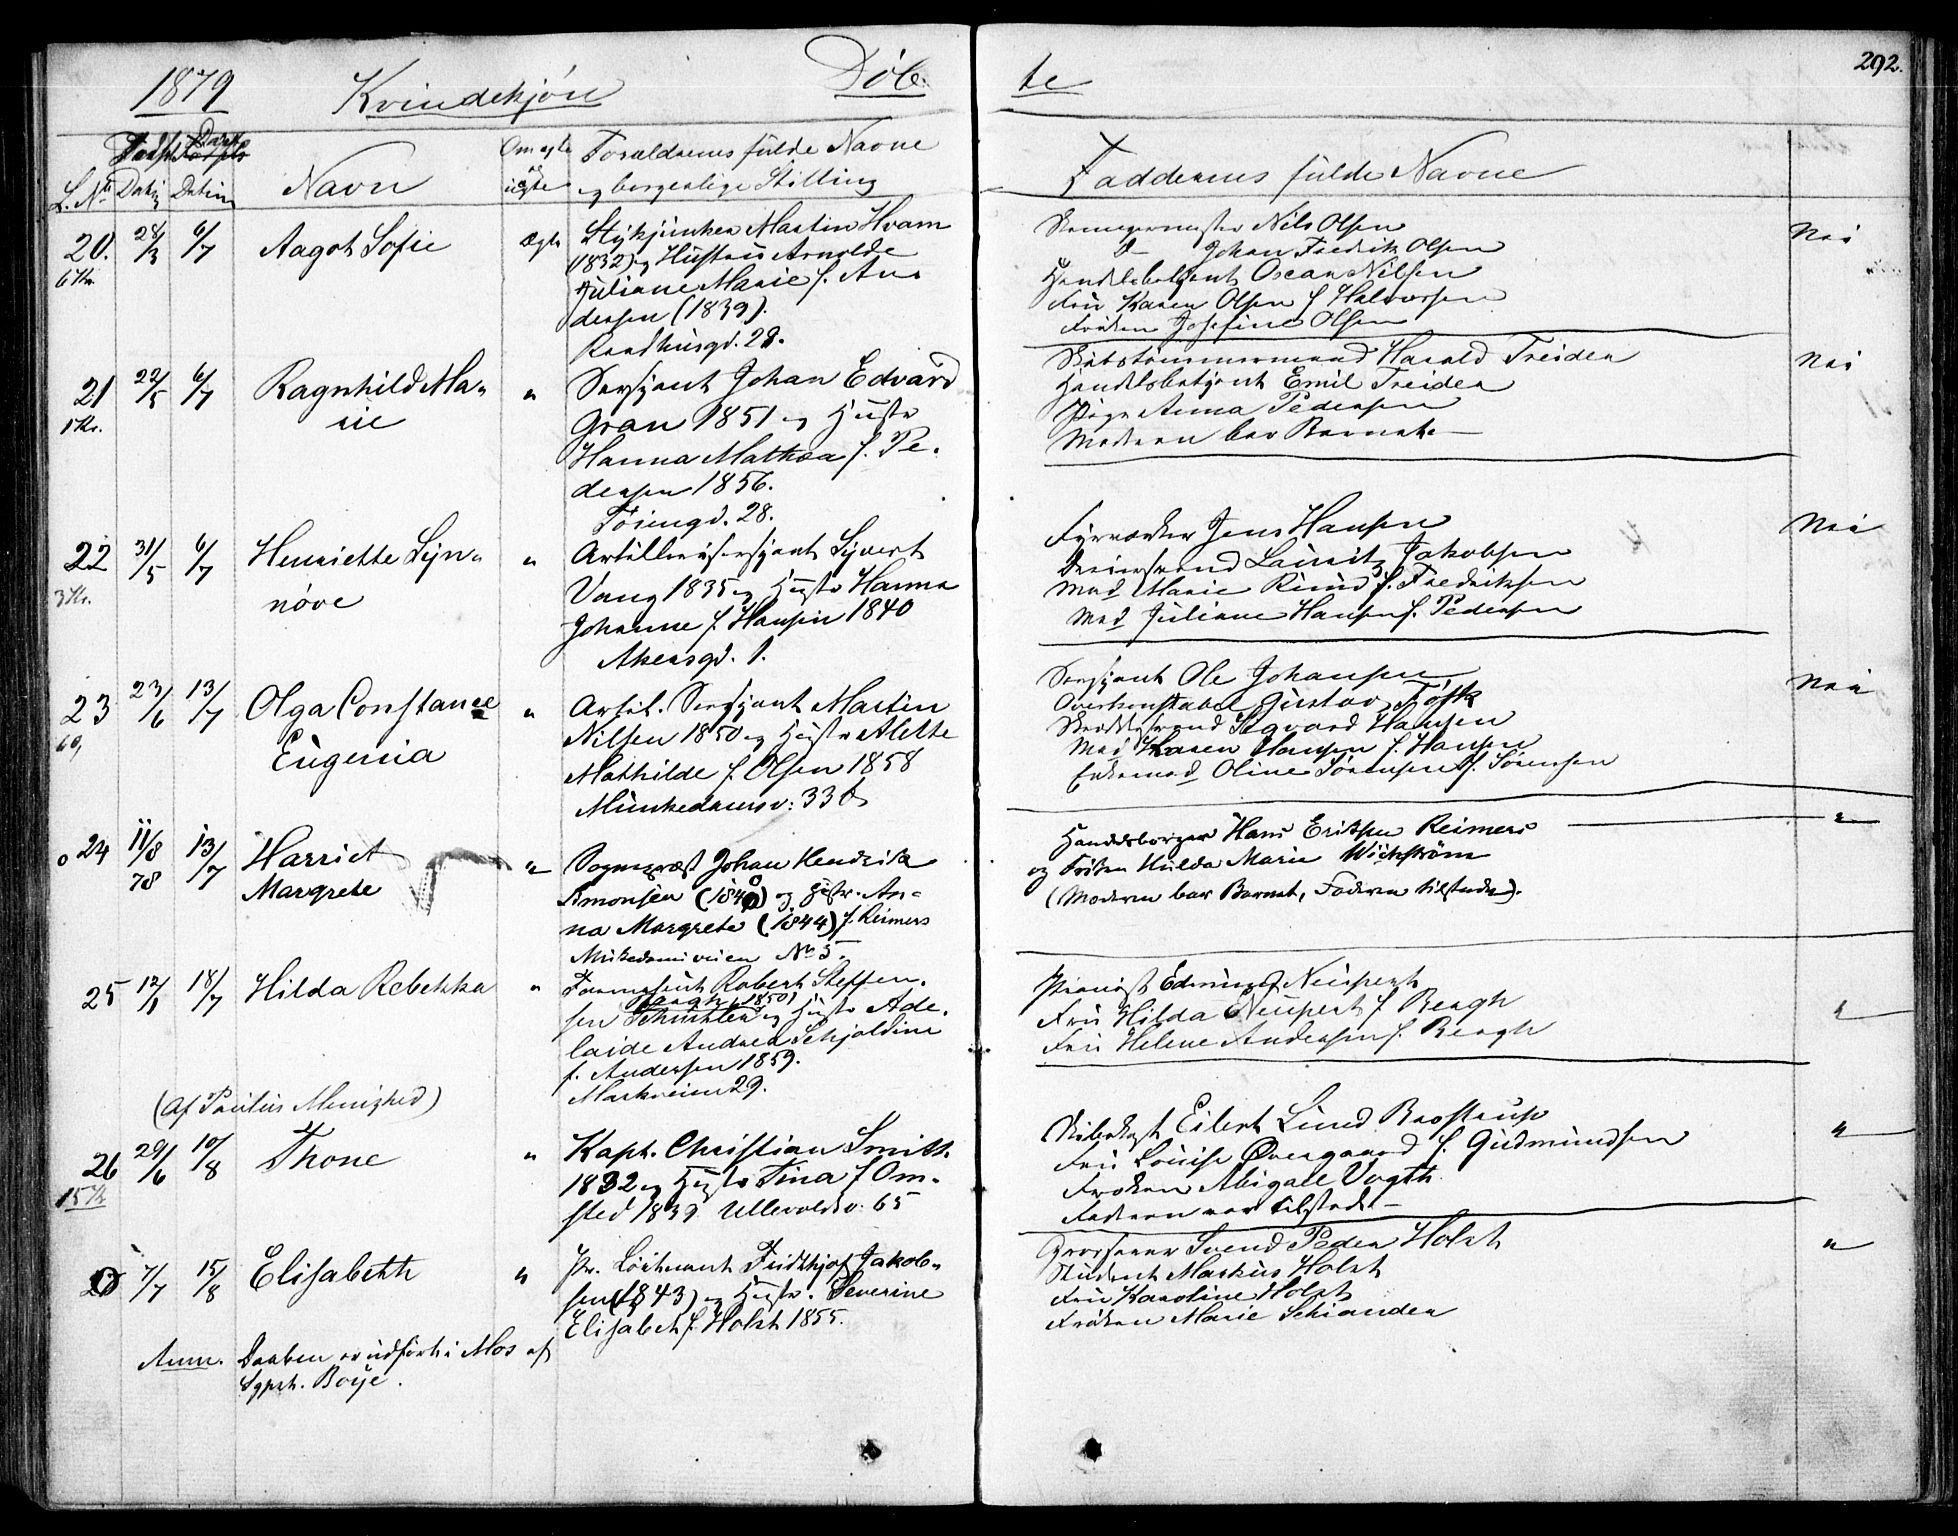 292.
1879 Kvindekjön Döb te
L. No Datum Datum Navn Om ægte uægte Forældrenes fulde Navne og borgerlige Stilling Faddernes fulde Navne
20. 28/3 6/7 Aagot Sofie ægte Stykjunker Martin Hvam
6 Kr. (1832) og Hustru Arnolde
Juliane Marie f. An-
dersen (1839).
Raadhusgd. 28.
Nils Olsen Nei
D— Johan Fredrik Olsen
Handelsbetjent Oscar Nilsen
Fru Karen Olsen f Halvorsen
Fröken Josefine Olsen
21 22/5 6/7 Ragnhild Ma- " Sersjant Johan Edvard
1 Kr. rie Gran 1851 og Hustr
Hanna Mathea f. Pe-
dersen 1856.
Töiengd. 28.
Skibstömmermand Harald Treider Nei
Handelsbetjent Emil Treider
Pige Anna Pedersen
Moderen bar Barnet—
22 31/5 6/7 Henriette Syn- " Artillerisersjant Syvert
3 Kr. növe Vang 1835 og Hustr Hanna
Johanne f. Hansen 1840
Akersgd. 1.
Fyrverker Jens Hansen Nei
Lauritz Jakobsen
Mad Marie Rund f. Fredriksen
Mad Juliane Hansen f. Pedersen
23 23/6 13/7 Olga Constance " Artil. Sersjant Martin
Eugenia Nilsen 1850 og Hustr Alette
Mathilde f Olsen 1858
Munkedamsv: 33 b
Sersjant Ole Johansen Nei
Overkonstabel Gustav
Sigvard Hansen
Mad Karen Hansen f. Hansen
Enkemad Oline Sörensen f. Sörensen
24 11/8 78 13/7 Harriet " Sogneprest Johan Hendrik
Margrete Simonsen og Hustr. An-
na Margrete (1844) f. Reimers
No 5
Handelsborger Hans Eriksen Reimers "
og Fröken Hulda Marie Wickström
(Moderen bar Barnet, Faderen tilstede).
25 12/1 18/7 Hilda Rebekka " Robert Steffen-
sen og Hustr Ade-
laide Andrea Schjoldine
f. Andersen 1859.
Markveien 29.
Pianist Edmund Neupert "
Fru Hilda Neupert f Bergh
Fru Helene Andersen f. Bergh
(Af Paulus Menighed)
26 29/6 10/8 Thone " Kapt. Christian Smith
15 Kr 1832 og Hustr Tina f Om-
sted 1839 Ullevoldsv. 65
Eilert Lund Barstrup "
Fru Louise Overgaard f. Gudmundsen
Fröken Abigael Vogth
Faderen var tilstede—
7/7 15/8 Elisabeth " Pr. Löitnant Fridthjof Jakob-
sen (1843) og Hustr. Severine
Elisabeth f. Holst 1855.
Grosserer Svend Peder Holst "
Student Markus Holst
Fru Karoline Holst
Fröken Marie Schiander
Anm. Daaben er udfört i Mos af
Sgpst. Boije.